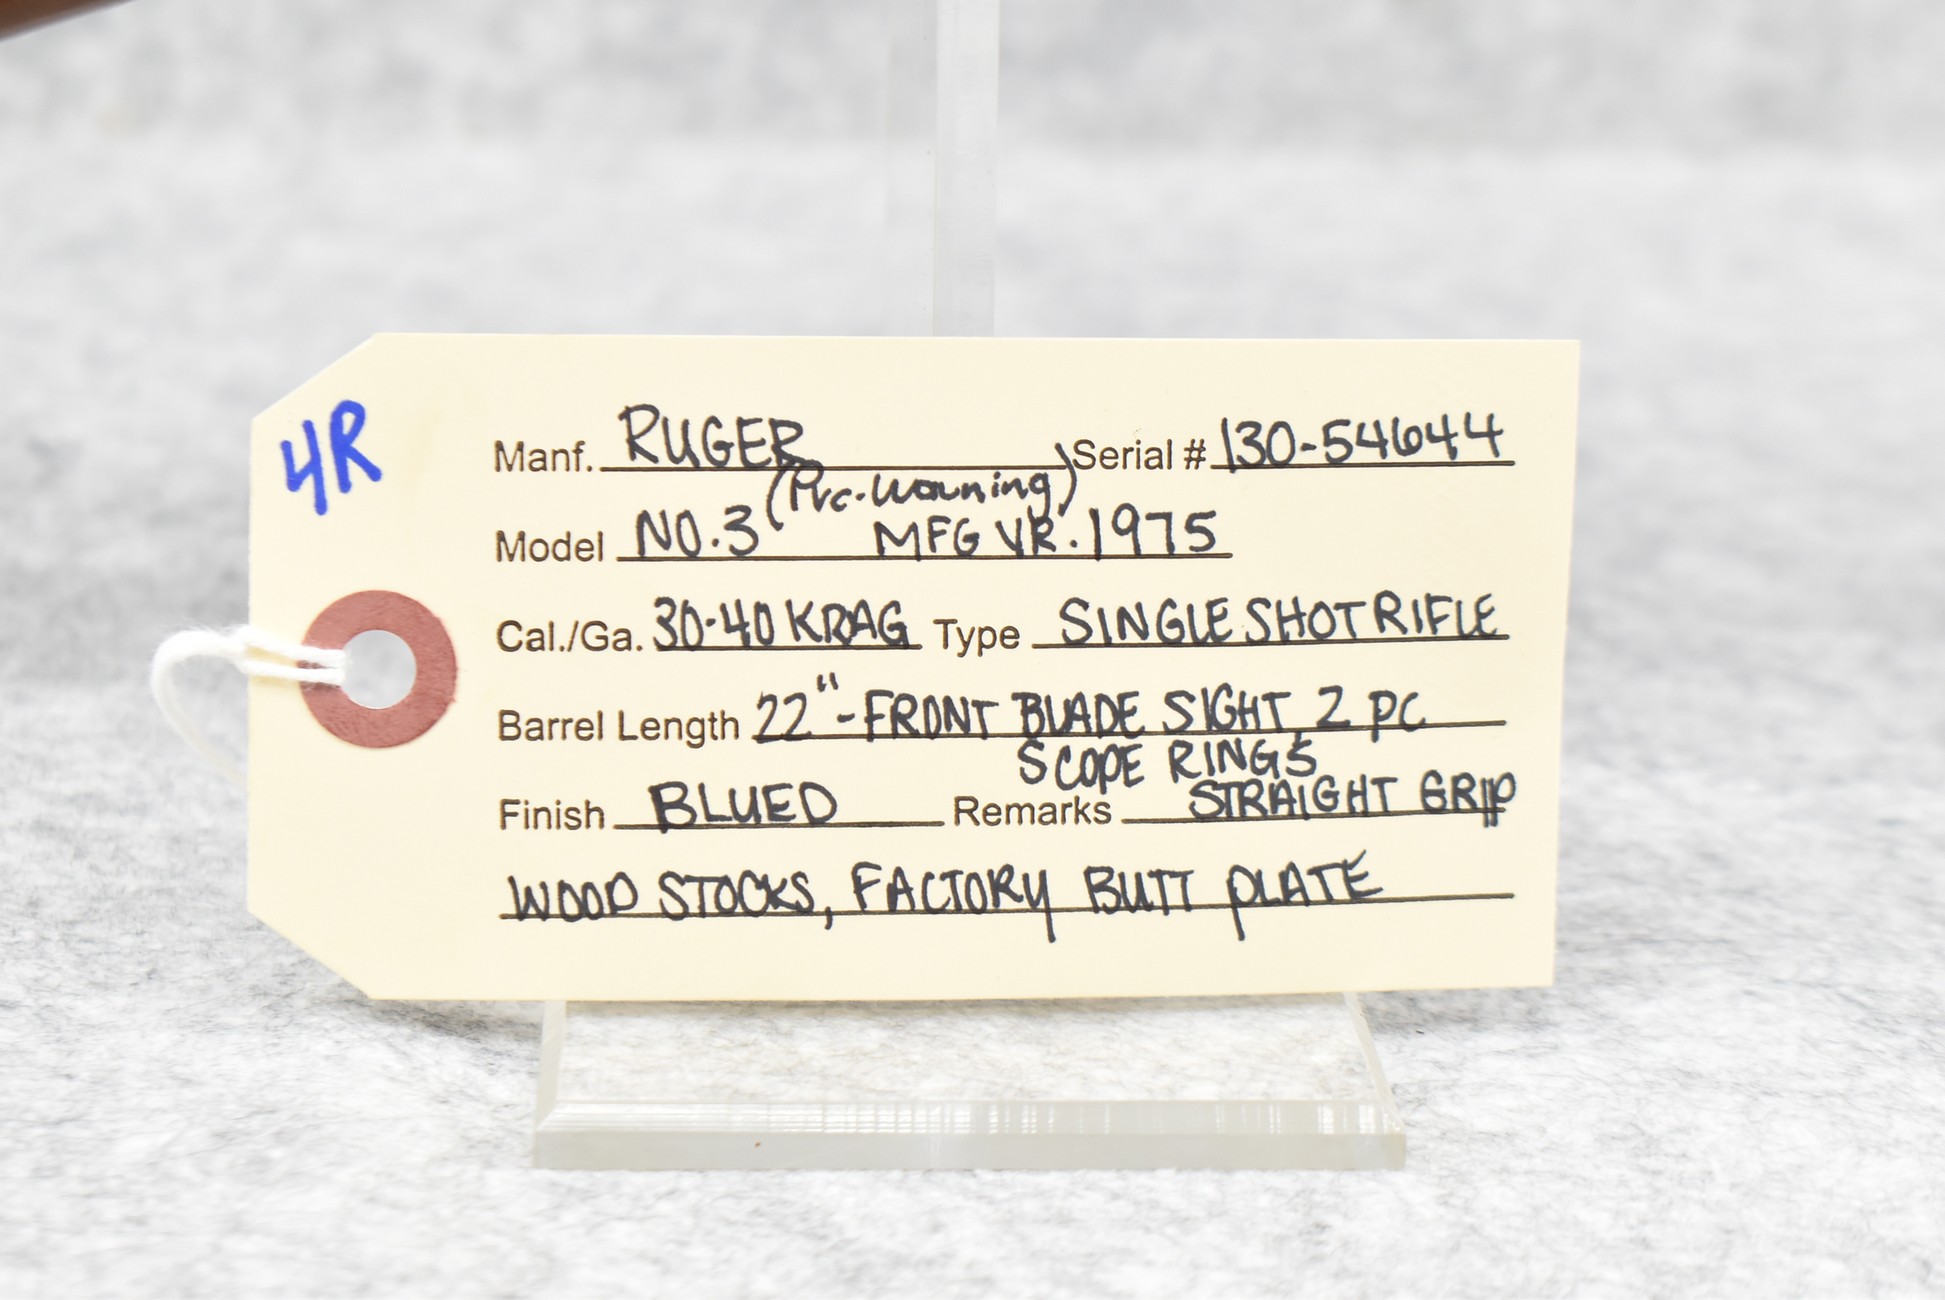 4R
Manf. RUGER Serial # 130-54644
(Pre-warning)
Model NO.3 MFG YR. 1975
Cal./Ga. 30-40 KRAG Type SINGLE SHOT RIFLE
Barrel Length 22"-FRONT BLADE SIGHT, 2 PC
SCOPE RINGS
Finish BLUED Remarks STRAIGHT GRIP
WOOD STOCKS, FACTORY BUTT PLATE